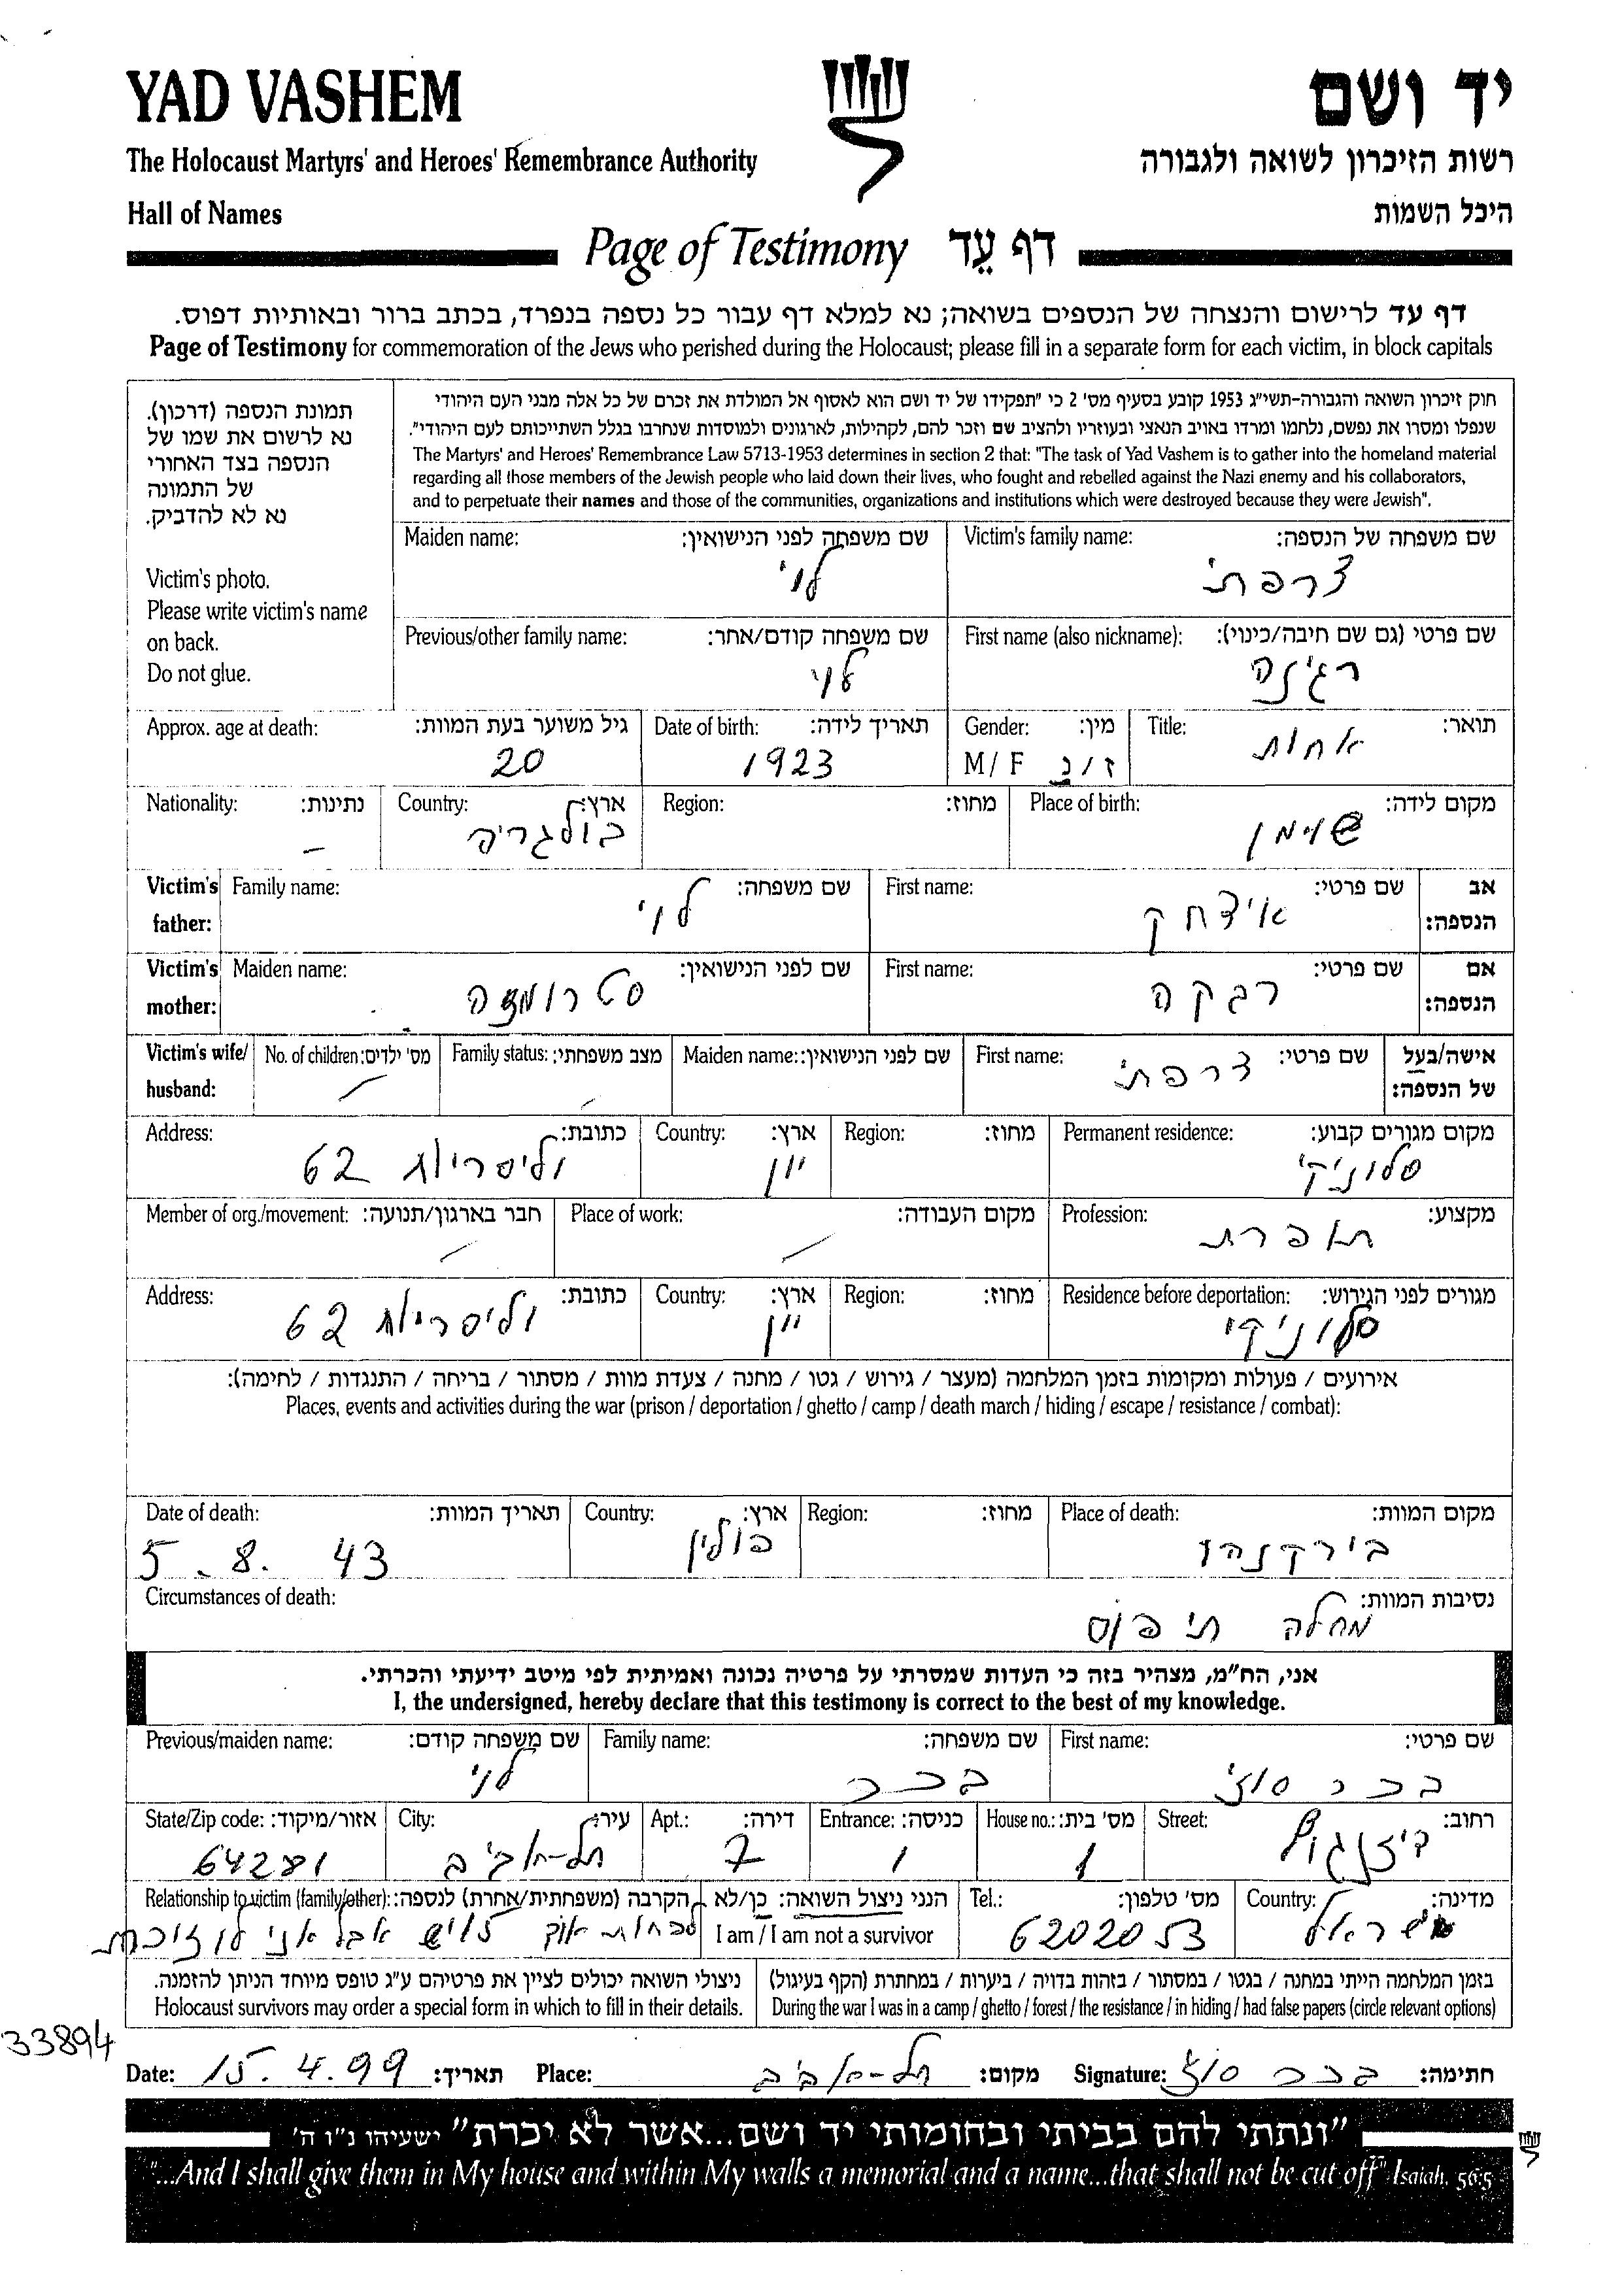 YAD VASHEM
יד ושם
The Holocaust Martyrs' and Heroes' Remembrance Authority
רשות הזיכרון לשואה ולגבורה
Hall of Names
היכל השמות
Page of Testimony דף עֵד
דף עד לרישום והנצחה של הנספים בשואה; נא למלא דף עבור כל נספה בנפרד, בכתב ברור ובאותיות דפוס.
Page of Testimony for commemoration of the Jews who perished during the Holocaust; please fill in a separate form for each victim, in block capitals
תמונת הנספה (דרכון).
נא לרשום את שמו של
הנספה בצד האחורי
של התמונה
נא לא להדביק.
Victim's photo.
Please write victim's name
on back.
Do not glue.
חוק זיכרון השואה והגבורה-תשי"ג 1953 קובע בסעיף מס' 2 כי "תפקידו של יד ושם הוא לאסוף אל המולדת את זכרם של כל אלה מבני העם היהודי
שנפלו ומסרו את נפשם, נלחמו ומרדו באויב הנאצי ובעוזריו ולהציב שם וזכר להם, לקהילות, לארגונים ולמוסדות שנחרבו בגלל השתייכותם לעם היהודי".
The Martyrs' and Heroes' Remembrance Law 5713-1953 determines in section 2 that: "The task of Yad Vashem is to gather into the homeland material
regarding all those members of the Jewish people who laid down their lives, who fought and rebelled against the Nazi enemy and his collaborators,
and to perpetuate their names and those of the communities, organizations and institutions which were destroyed because they were Jewish".
Victim's family name: שם משפחה של הנספה:
צרפתי
Maiden name: שם משפחה לפני הנישואין:
לוי
First name (also nickname): שם פרטי (גם שם חיבה/כינוי):
רג'נה
Previous/other family name: שם משפחה קודם/אחר:
לוי
Title: תואר:
אחות
Gender: מין:
M/ F ז/נ
Date of birth: תאריך לידה:
1923
Approx. age at death: גיל משוער בעת המוות:
20
Place of birth: מקום לידה:
שוימן
Region: מחוז:
Country: ארץ:
בולגריה
Nationality: נתינות:
–
Victim's father: אב הנספה:
First name: שם פרטי:
איצחק
Family name: שם משפחה:
לוי
Victim's mother: אם הנספה:
First name: שם פרטי:
רבקה
Maiden name: שם לפני הנישואין:
סטרומצה
Victim's wife/ husband: אישה/בעל של הנספה:
First name: שם פרטי:
צרפתי
Maiden name: שם לפני הנישואין:
Family status: מצב משפחתי:
No. of children: מס' ילדים:
Permanent residence: מקום מגורים קבוע:
סלוניקי
Region: מחוז:
Country: ארץ:
יון
Address: כתובת:
62
Profession: מקצוע:
תופרת
Place of work: מקום העבודה:
Member of org./movement: חבר בארגון/תנועה:
Residence before deportation: מגורים לפני הגירוש:
סלוניקי
Region: מחוז:
Country: ארץ:
יון
Address: כתובת:
62
אירועים / פעולות ומקומות בזמן המלחמה (מעצר / גירוש / גטו / מחנה / צעדת מוות / מסתור / בריחה / התנגדות / לחימה):
Places, events and activities during the war (prison / deportation / ghetto / camp / death march / hiding / escape / resistance / combat):
Place of death: מקום המוות:
בירקנהו
Region: מחוז:
Country: ארץ:
פולין
Date of death: תאריך המוות:
5. 8. 43
Circumstances of death: נסיבות המוות:
מחלה תיפוס
אני, הח"מ, מצהיר בזה כי העדות שמסרתי על פרטיה נכונה ואמיתית לפי מיטב ידיעתי והכרתי.
I, the undersigned, hereby declare that this testimony is correct to the best of my knowledge.
First name: שם פרטי:
בכר סוזי
Family name: שם משפחה:
בכר
Previous/maiden name: שם משפחה קודם:
לוי
Street: רחוב:
דיזנגוף
House no.: מס' בית:
1
Entrance: כניסה:
1
Apt.: דירה:
7
City: עיר:
תל-אביב
State/Zip code: אזור/מיקוד:
64281
Country: מדינה:
ישראל
Tel.: מס' טלפון:
6202053
הנני ניצול השואה: כן/לא
I am / I am not a survivor
Relationship to victim (family/other): הקרבה (משפחתית/אחרת) לנספה:
אבל אני לו זוכרת
בזמן המלחמה הייתי במחנה / בגטו / במסתור / בזהות בדויה / ביערות / במחתרת (הקף בעיגול)
During the war I was in a camp / ghetto / forest / the resistance / in hiding / had false papers (circle relevant options)
ניצולי השואה יכולים לציין את פרטיהם ע"ג טופס מיוחד הניתן להזמנה.
Holocaust survivors may order a special form in which to fill in their details.
33894
Date: 15.4.99 תאריך: Place: תל-אביב מקום: Signature: בכר סוזי חתימה:
"ונתתי להם בביתי ובחומותי יד ושם...אשר לא יכרת" ישעיהו נ"ו ה'
"...And I shall give them in My house and within My walls a memorial and a name...that shall not be cut off" Isaiah, 56:5